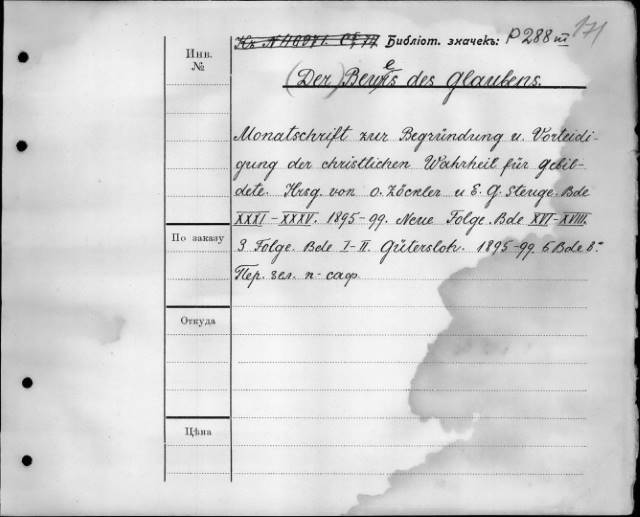 Инв. №
Библіот. значекъ: P 288 III 171
(Der) Beweis des Glaubens.
Monatschrift zur Begründung u. Vorteidi-
gung der christlichen Wahrheit für Gebil-
dete. Hrsg. von O. Zöckler u E. G. Steuge. Bde
XXXI-XXXV. 1895-99. Neue Folge. Bde XVI-XVIII.
По заказу
3 Folge. Bde I-II. Gütersloh. 1895-99. 6 Bde 8º
Пер. зел. п-саф.
Откуда
Цѣна